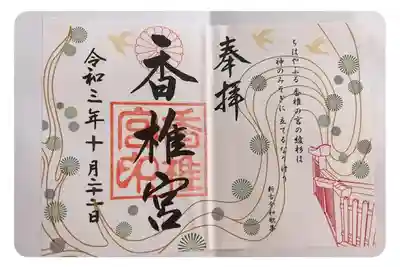 奉拝
ちはやふる 香椎の宮の綾杉は
神のみそぎに たてるなりけり
新古今和歌集
香椎宮
香椎
宮印
令和三年十月二十二日